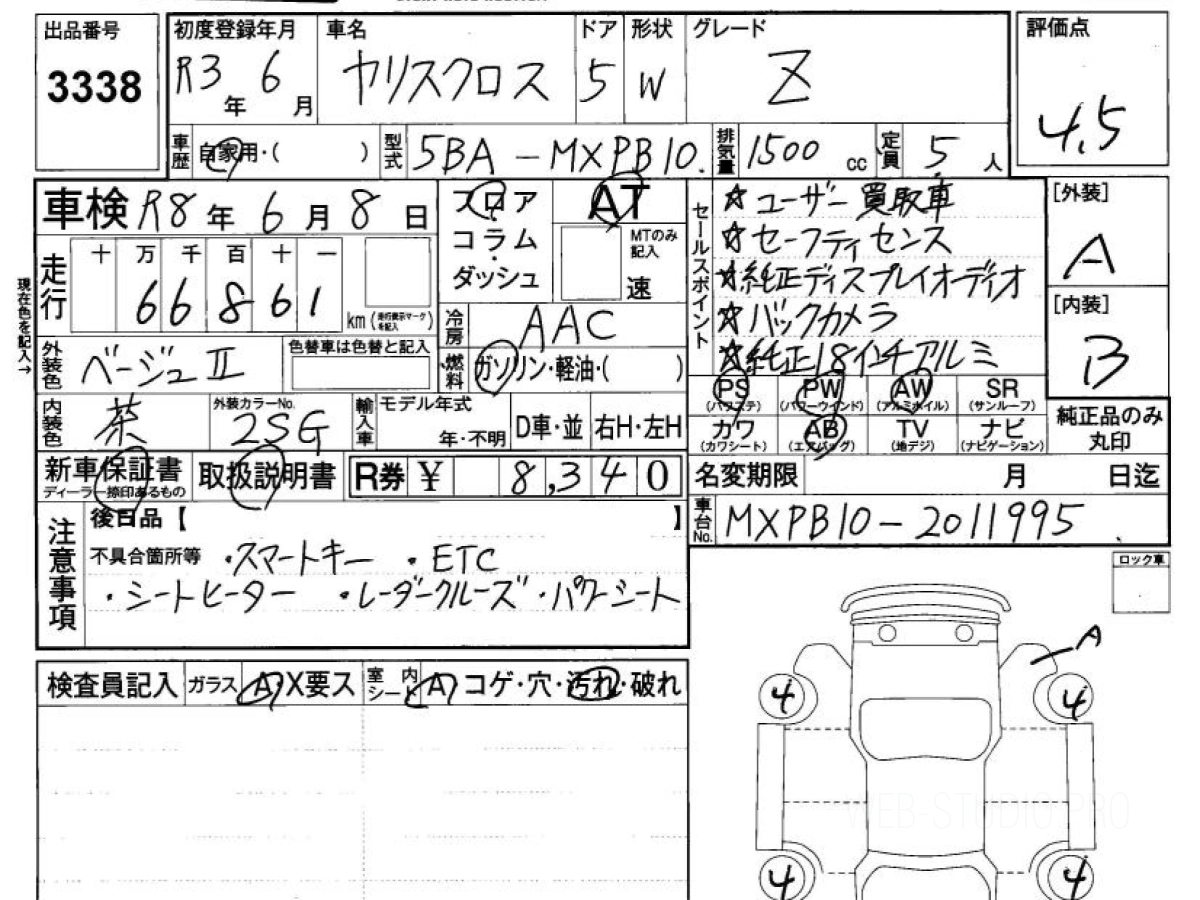 出品番号
3338
初度登録年月
R3 年 6 月
車名
ヤリスクロス
ドア
5
形状
W
グレード
Z
評価点
4.5
車歴 自家用・( )
型式 5BA - MXPB10.
排気量 1500 cc
定員 5 人
車検 R8 年 6 月 8 日
フロア
コラム
ダッシュ
AT
MTのみ
記入
速
セールスポイント
☆ユーザー買取車
☆セーフティセンス
☆純正ディスプレイオーディオ
☆バックカメラ
☆純正18インチアルミ
[外装]
A
[内装]
B
現在色を記入→
走行
十 万 千 百 十 一
6 6 8 6 1
km (走行表示マークを記入)
冷房 AAC
燃料 ガソリン・軽油・( )
外装色 ベージュII
色替車は色替と記入
内装色 茶
外装カラーNo.
2SG
輸入車
モデル年式
年・不明
D車・並
右H・左H
PS
(パワステ)
PW
(パワーウインド)
AW
(アルミホイル)
SR
(サンルーフ)
カワ
(カワシート)
AB
(エアバッグ)
TV
(地デジ)
ナビ
(ナビゲーション)
純正品のみ
丸印
新車保証書
ディーラー捺印あるもの
取扱説明書
R券 ¥ 8,340
名変期限 月 日迄
車台No. MXPB10-2011995
注意事項
後日品【 】
不具合箇所等 ・スマートキー ・ETC
・シートヒーター ・レーダークルーズ・パワーシート
ロック車
検査員記入
ガラス A X要ス
室内シート A コゲ・穴・汚れ・破れ
A
4 4
4 4
WEB-STUDIO.PRO